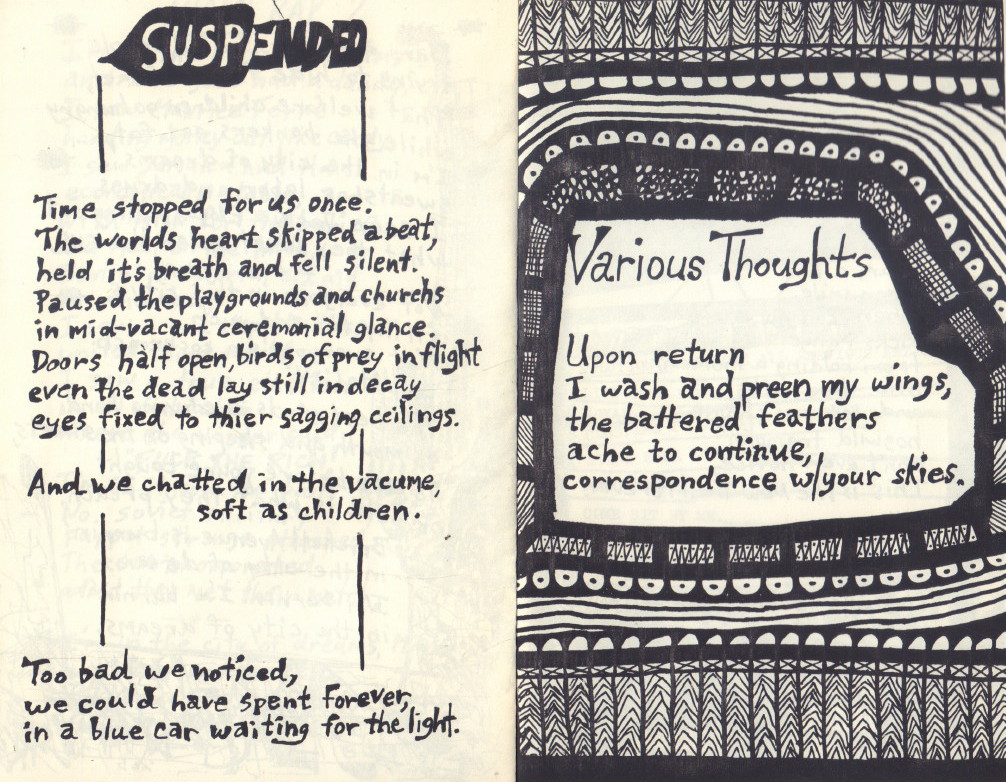 SUSPENDED
Time stopped for us once.
The worlds heart skipped a beat,
held it's breath and fell silent.
Paused the playgrounds and churchs
in mid-vacant ceremonial glance.
Doors half open, birds of prey in flight
even the dead lay still in decay
eyes fixed to thier sagging ceilings.
And we chatted in the vacume,
soft as children.
Too bad we noticed,
we could have spent forever,
in a blue car waiting for the light.
Various Thoughts
Upon return
I wash and preen my wings,
the battered feathers
ache to continue,
correspondence w/your skies.